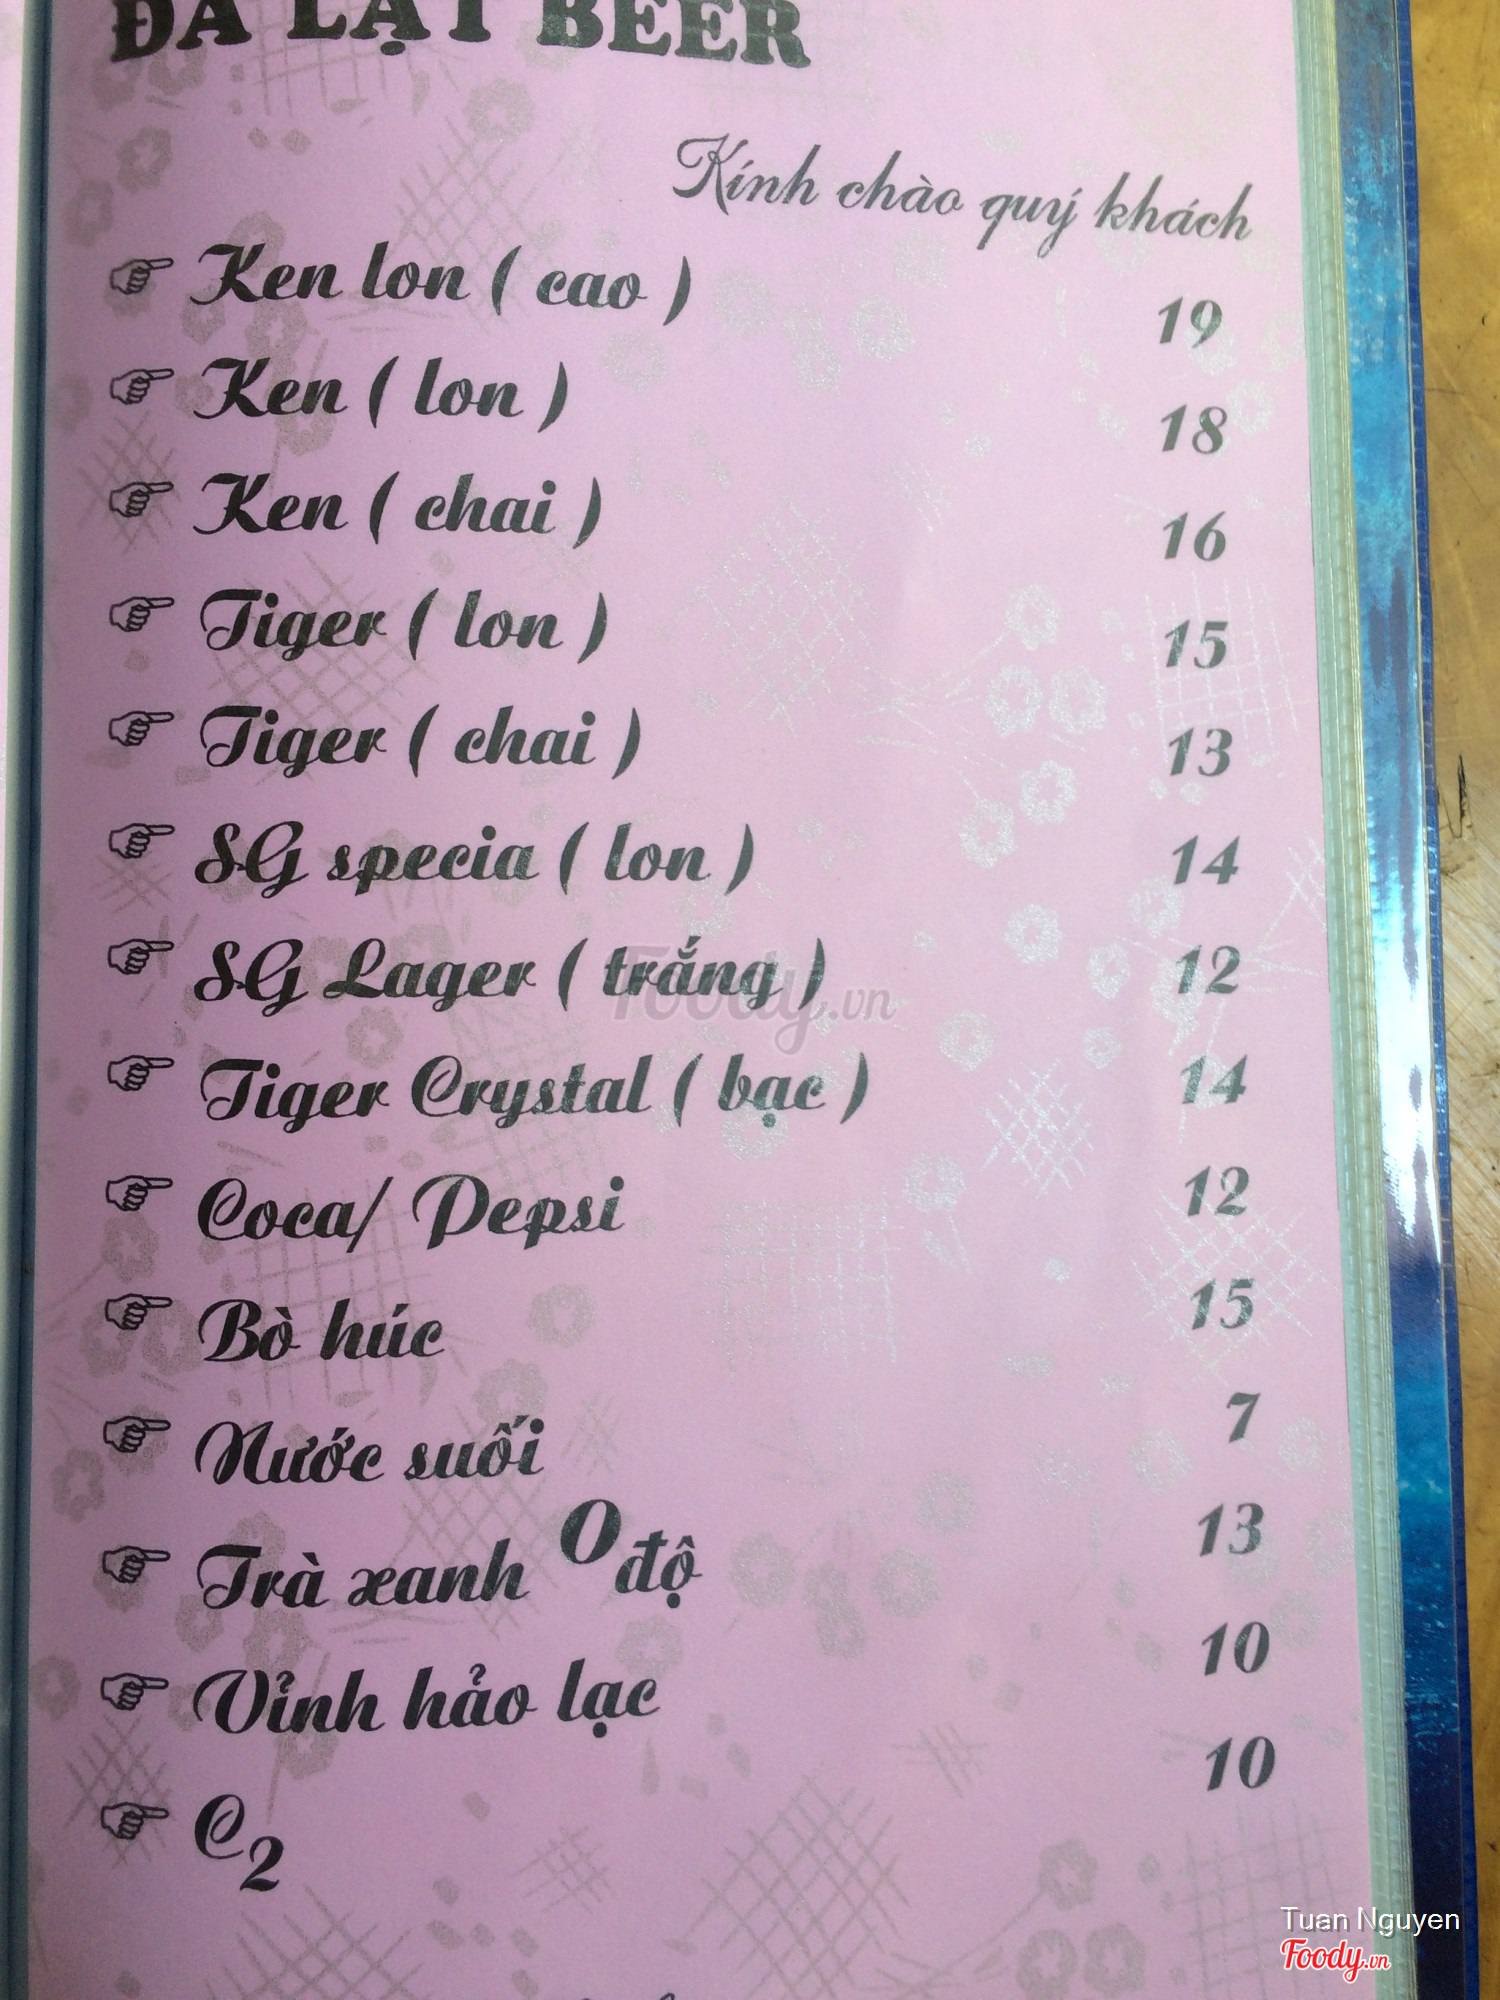 ĐÀ LẠT BEER
Kính chào quý khách
Ken lon ( cao ) 19
Ken ( lon ) 18
Ken ( chai ) 16
Tiger ( lon ) 15
Tiger ( chai ) 13
SG specia ( lon ) 14
SG Lager ( trắng ) 12
Tiger Crystal ( bạc ) 14
Coca/ Pepsi 12
Bò húc 15
Nước suối 7
Trà xanh 0 độ 13
Vỉnh hảo lạc 10
C2 10
Foody.vn
Tuan Nguyen
Foody.vn